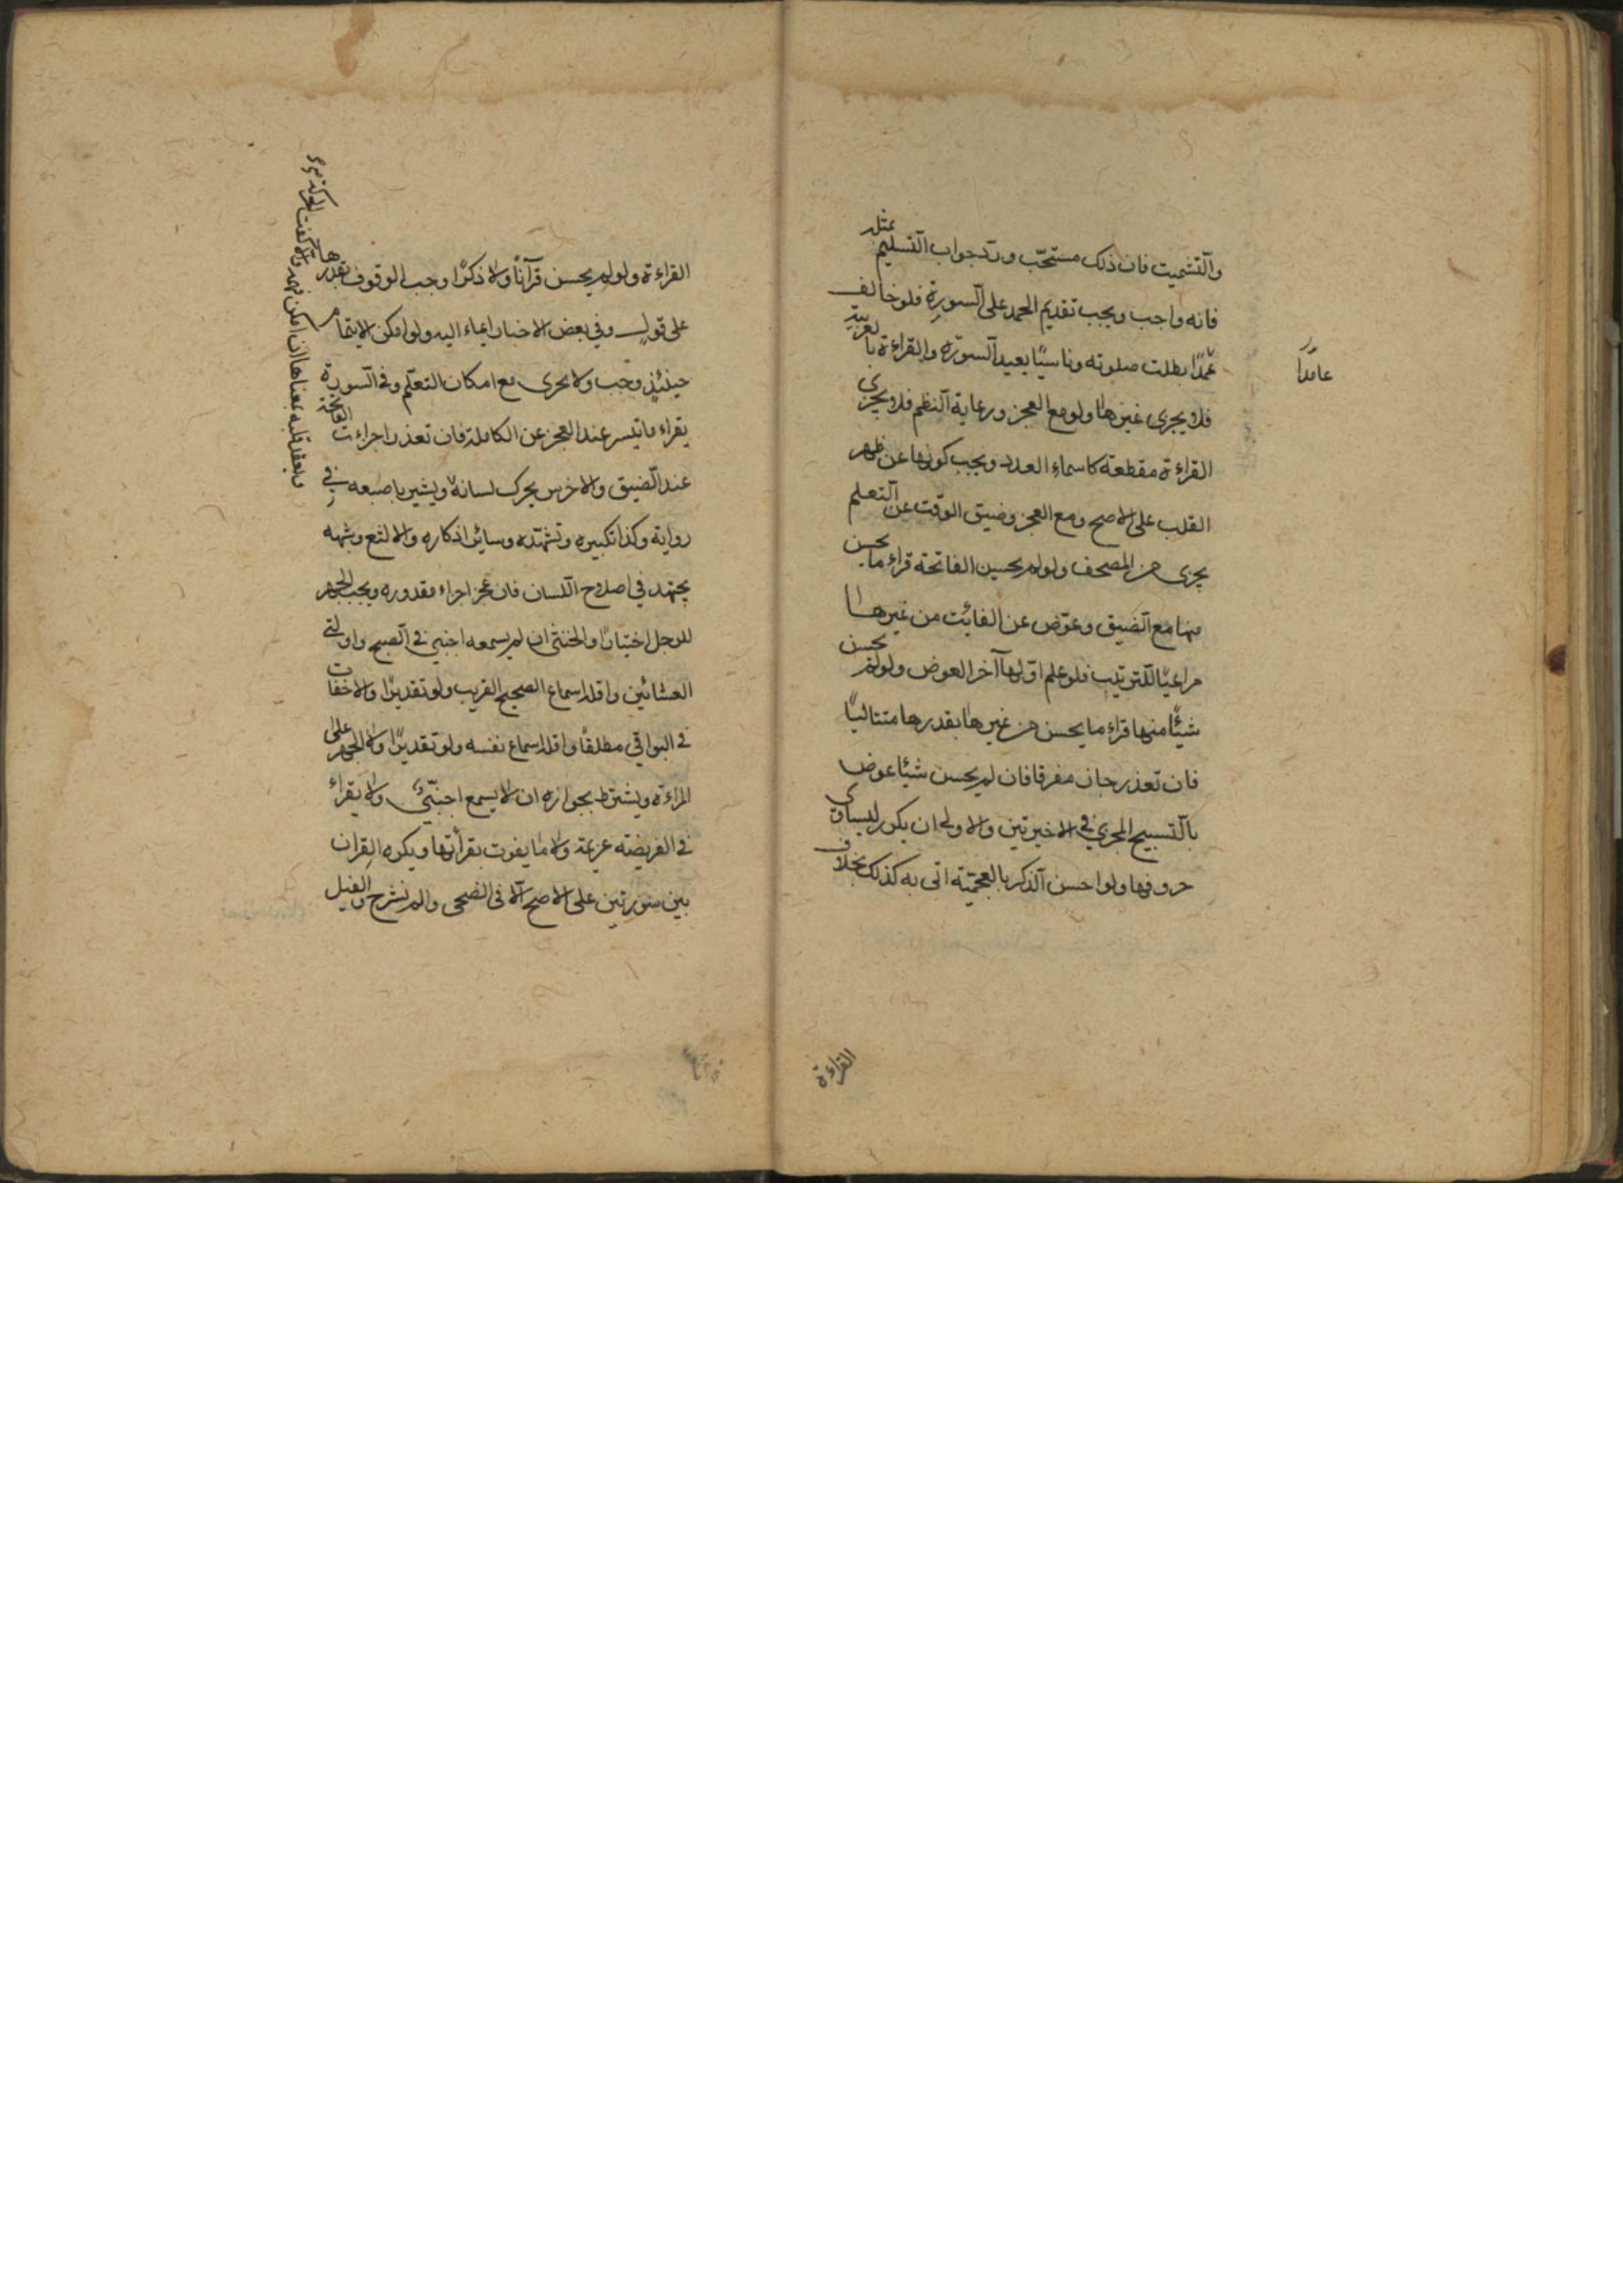 والتشميت فان ذلك مستحب ورد جواب التسليم بمثله
فانه واجب ويجب تقديم الحمد على السورة فلو خالف
عمدا بطلت صلوته وناسيا يعيد السورة والقراءة بالعربية
عامدا
فلا يجزى غيرها ولو مع العجز ورعاية النظم فلا يجزى
القراءة مقطعة كاسماء العدد ويجب كونها عن ظهر
القلب على الاصح ومع العجز وضيق الوقت عن التعلم
يجزى من المصحف ولو لم يحسن الفاتحة قراء ما يحسن
منها مع الضيق وعوض عن الفائت من غيرها
مراعيا للترتيب فلو علم اولها آخر العوض ولو لم يحسن
شيئا منها قراء ما يحسن من غيرها بقدرها متتاليا
فان تعذر جاز مفرقا فان لم يحسن شيئا عوض
بالتسبيح المجزي في الاخيرتين والاولى ان يكرر ليساوى
حروفها ولو احسن الذكر بالعجمية اتى به كذلك بخلاف
القراءة
القراءة ولو لم يحسن قرآنا ولا ذكرا وجب الوقوف بقدرها
على قول وفي بعض الاخبار ايماء اليه ولو امكن الايتمام
حينئذ وجب ولا يجزى مع امكان التعلم وفي السورة
يقراء ما تيسر عند العجز عن الكاملة فان تعذر اجزاءت الفاتحة
عند الضيق والاخرس يحرك لسانه ويشير باصبعه في
رواية وكذا تكبيره وتشهده وسائر اذكاره والالثغ وشبهه
يجتهد في اصلاح اللسان فان عجز اجزاء مقدوره ويجب الجهر
للرجل اختيارا والخنثى ان لم يسمعه اجنبي في الصبح واولتى
العشائين واقله اسماع الصحيح القريب ولو تقديرا والاخفات
في البواقي مطلقا واقله اسماع نفسه ولو تقديرا ولا جهر على
المراءة ويشترط بجوازه ان لا يسمع اجنبي ولا يقراء
في الفريضة عزيمة ولا ما يفوت بقرأتها ويكره القران
بين سورتين على الاصح الا في الضحى والم نشرح والفيل